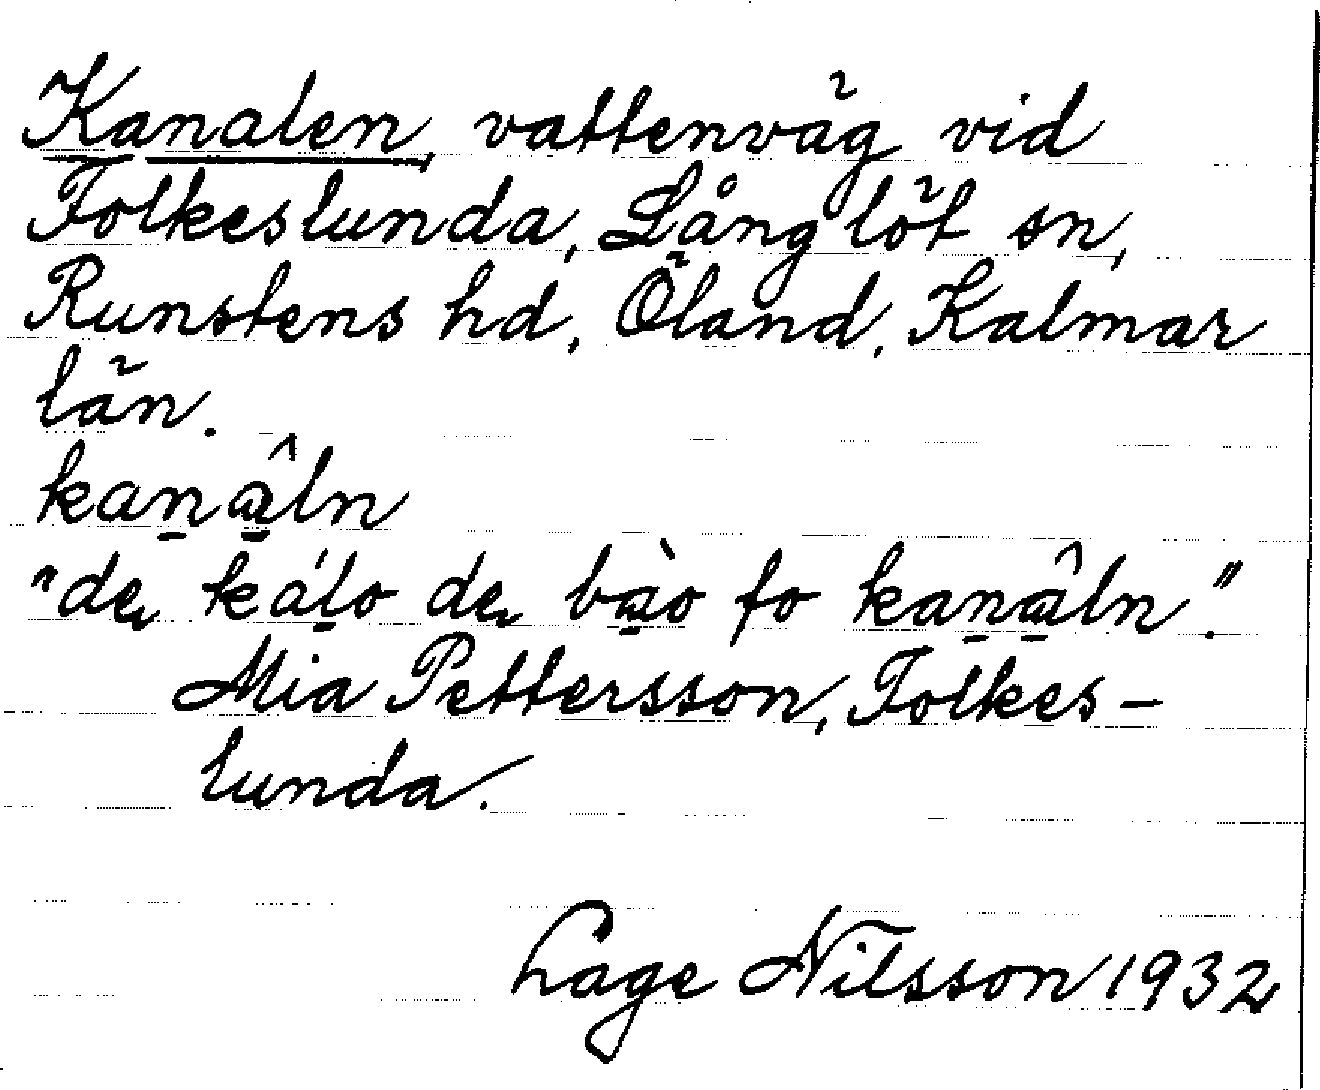 Kanalen, vattenväg vid
Folkeslunda, Långlöt sn,
Runstens hd, Öland, Kalmar
län.
kanâln
"de kálo de bào fo kanâln."
Mia Pettersson, Folkes-
lunda.
Lage Nilsson 1932